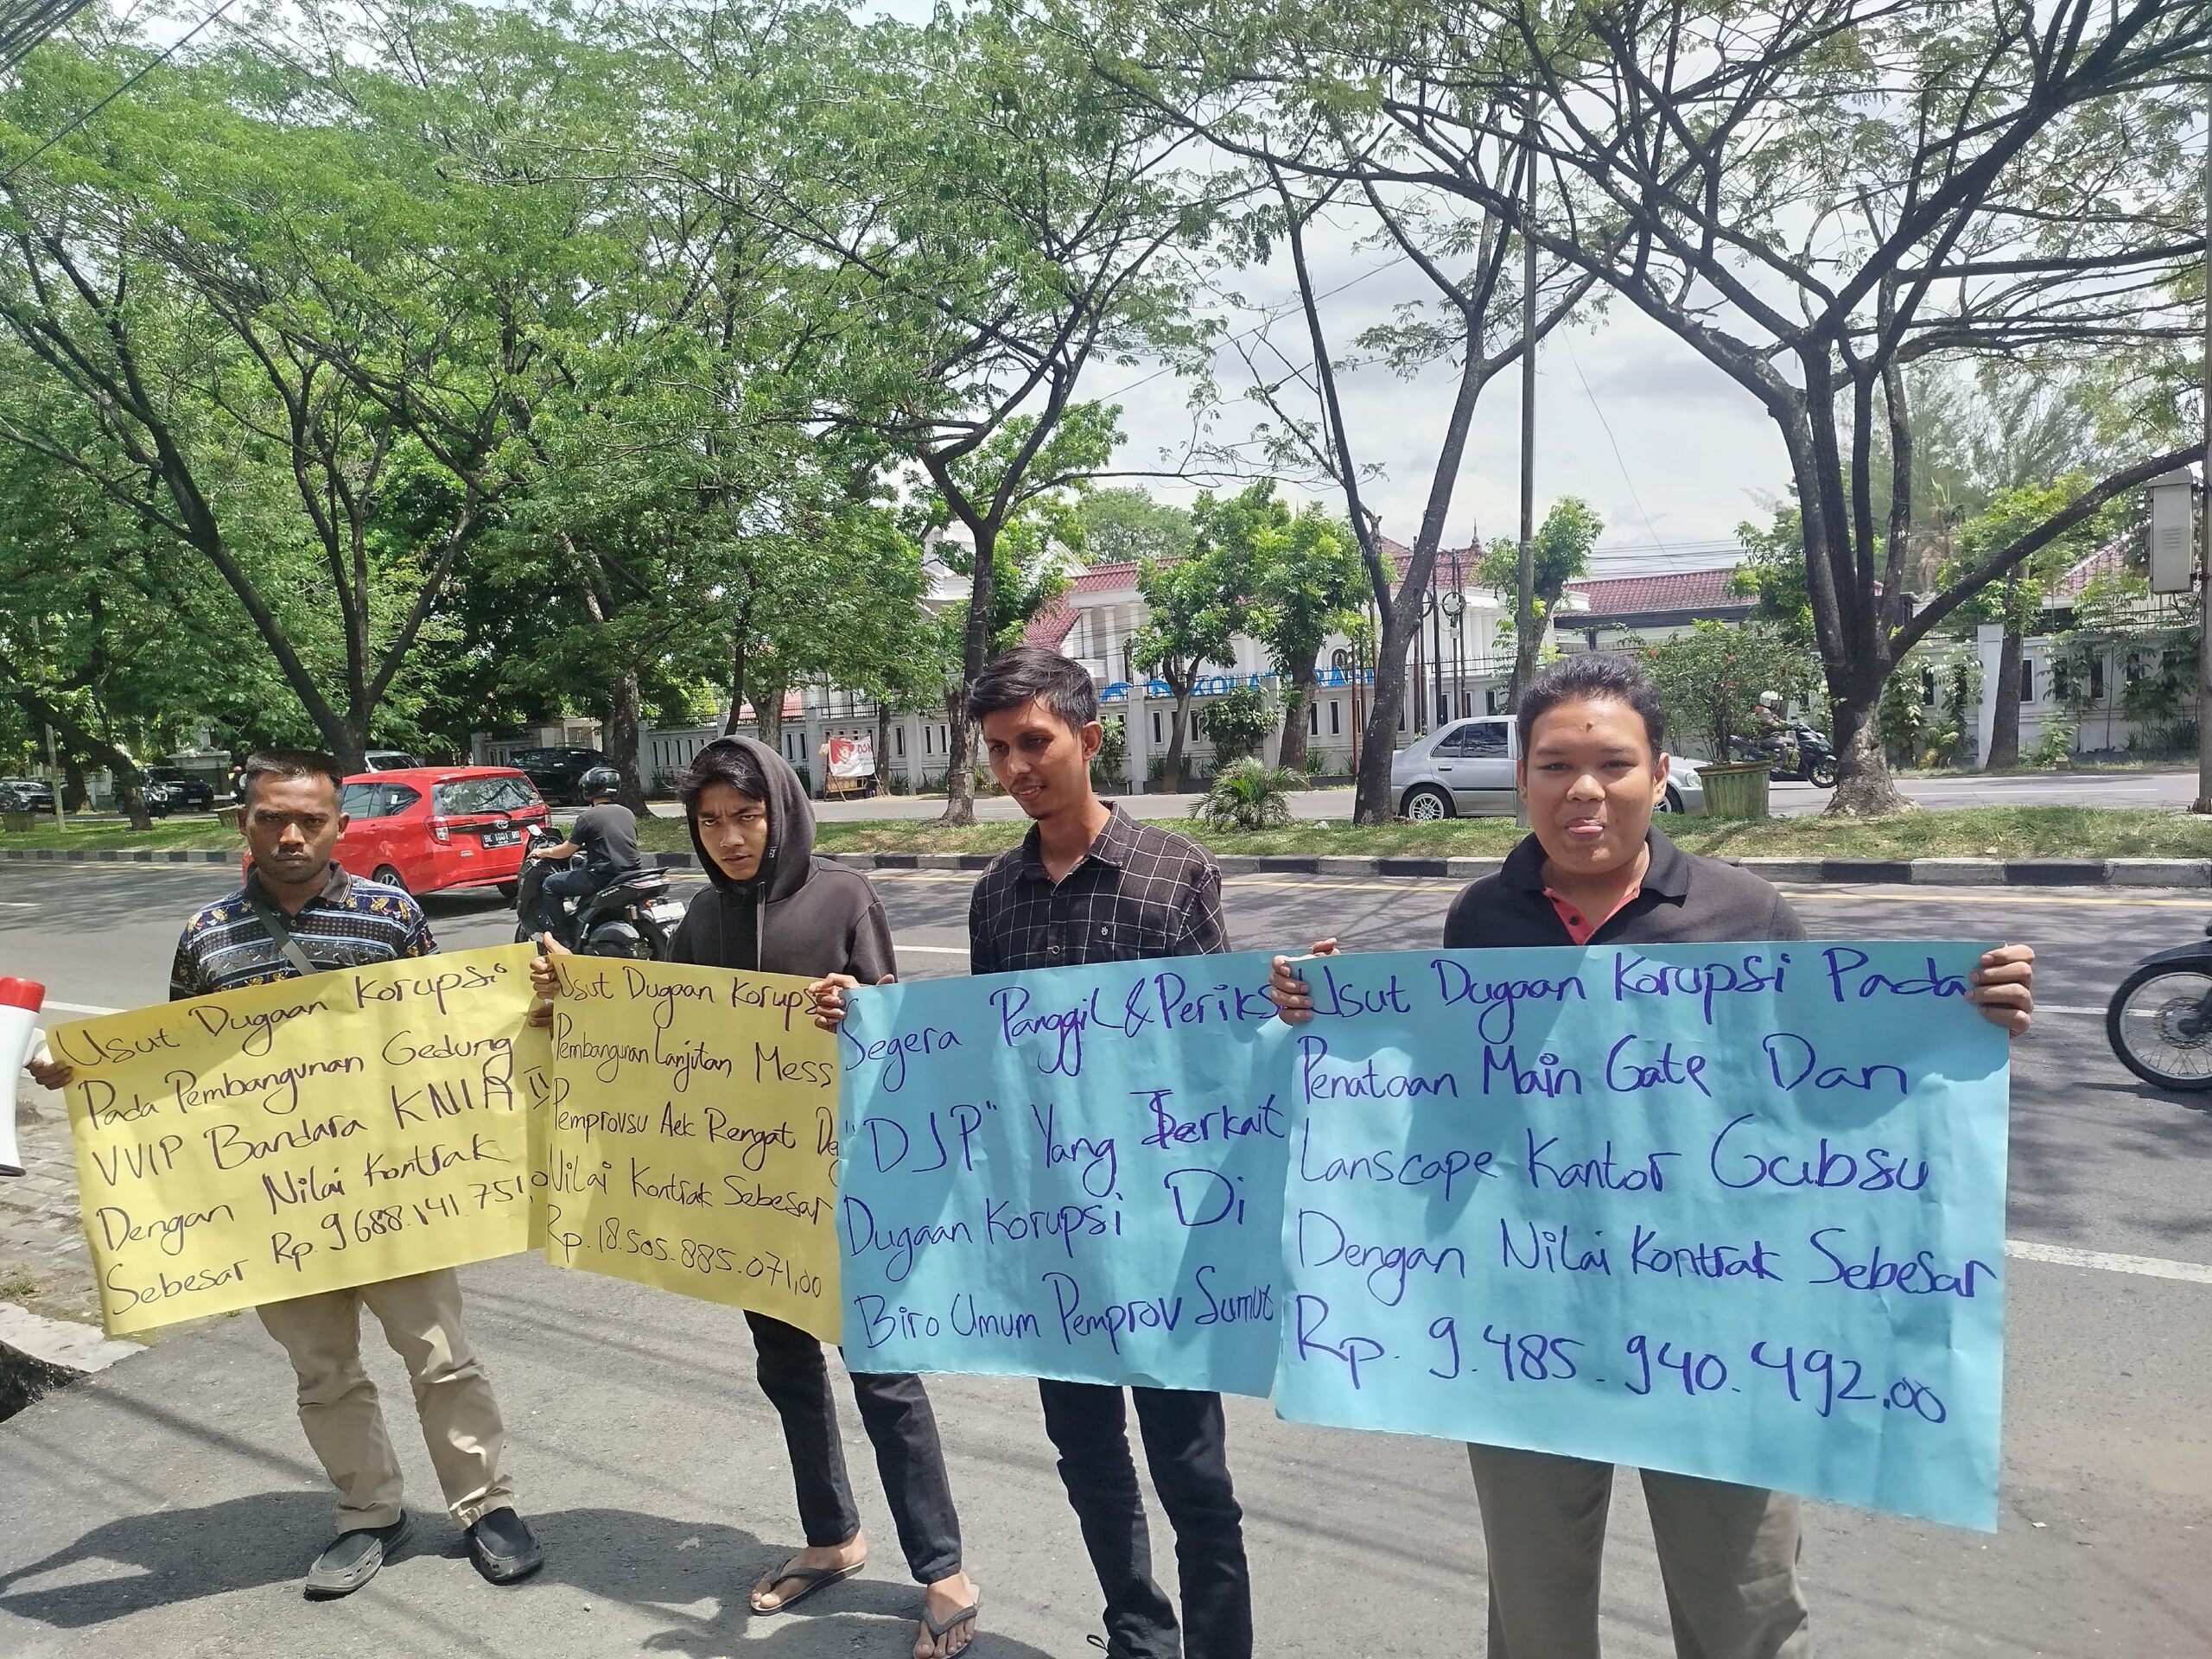 Usut Dugaan Korupsi
Pada Pembangunan Gedung
VVIP Bandara KNIA II
Dengan Nilai Kontrak
Sebesar Rp. 9.688.141.751,0
Usut Dugaan Korups
Pembangunan Lanjutan Mess
Pemprovsu Aek Rengat De
Nilai Kontrak Sebesar
Rp. 18.505.885.071,00
Segera Panggil & Periks
"DJP" Yang Terkait
Dugaan Korupsi Di
Biro Umum Pemprov Sumut
Usut Dugaan Korupsi Pada
Penataan Main Gate Dan
Lanscape Kantor Gubsu
Dengan Nilai Kontrak Sebesar
Rp. 9.485.940.492.00